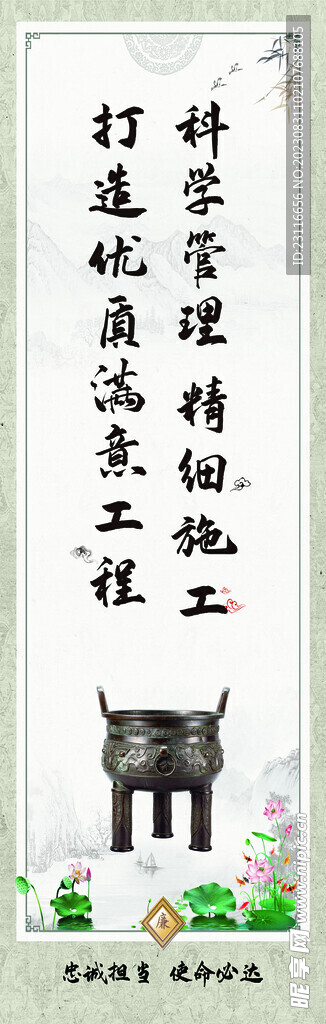 科学管理 精细施工
打造优质满意工程
廉
忠诚担当 使命必达
ID:23116656 NO:20230831102107688105
昵享网 www.nipic.cn